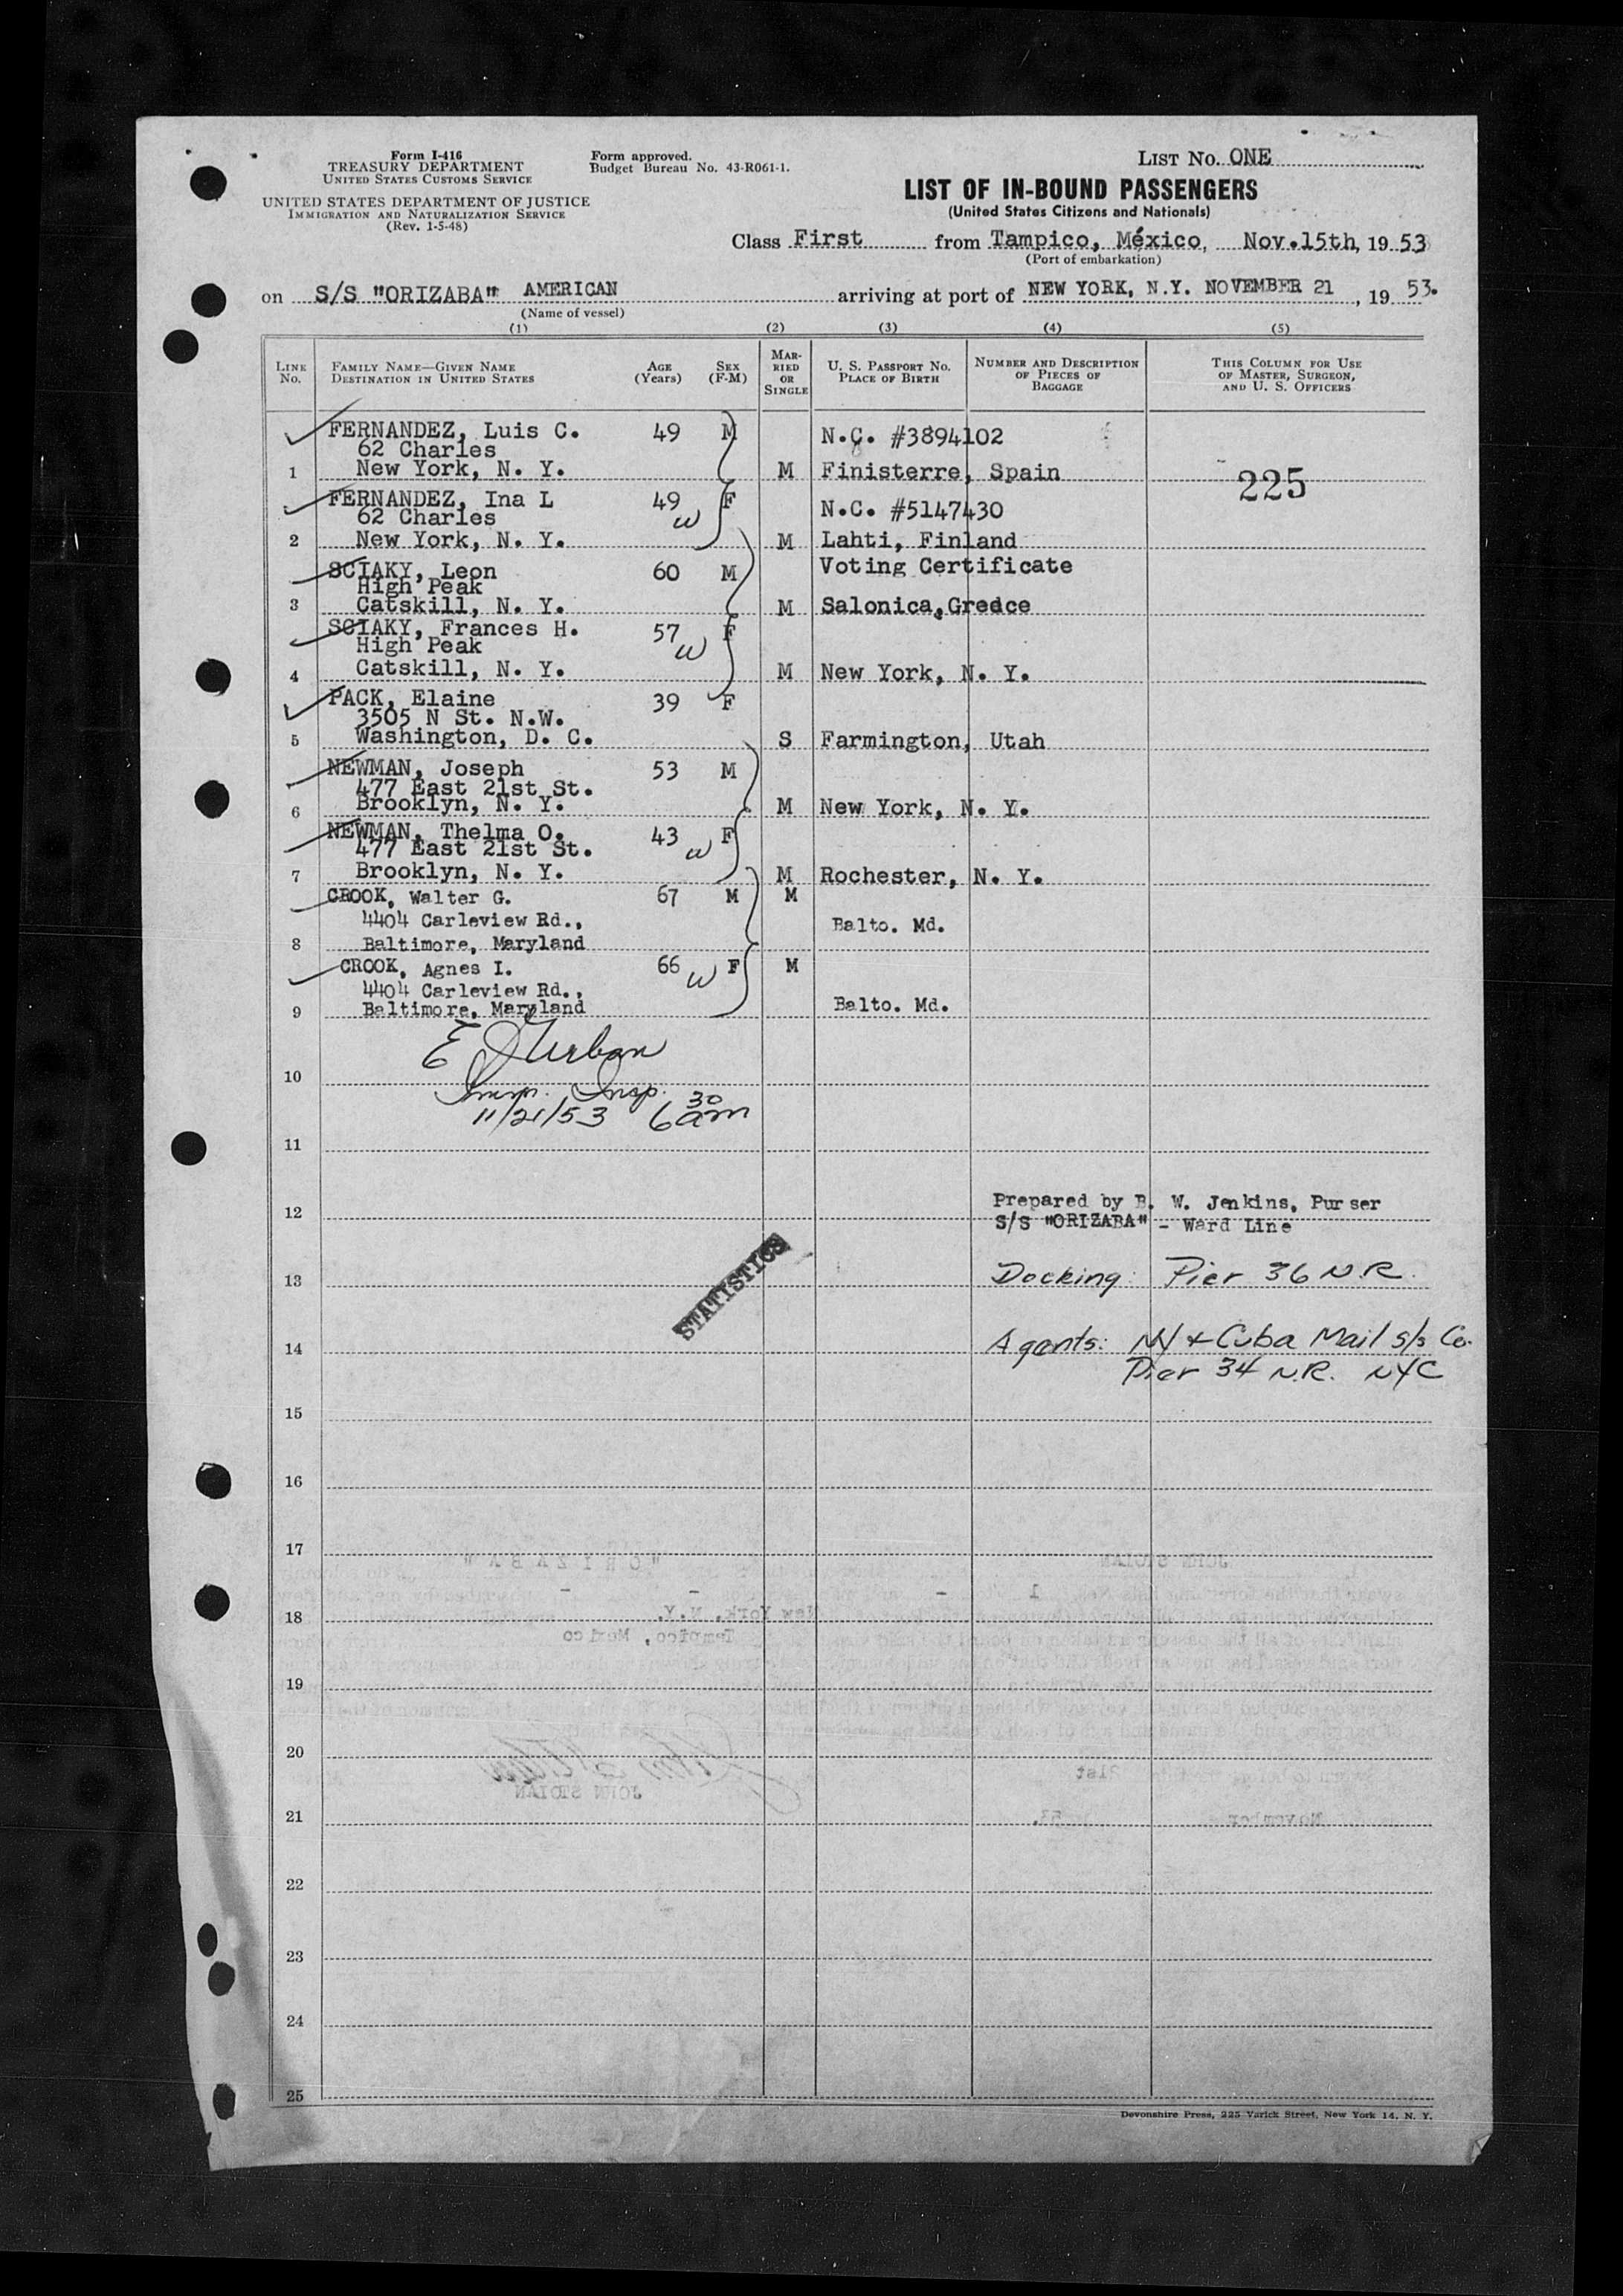 Form I-416
TREASURY DEPARTMENT
UNITED STATES CUSTOMS SERVICE
UNITED STATES DEPARTMENT OF JUSTICE
IMMIGRATION AND NATURALIZATION SERVICE
(Rev. 1-5-48)
Form approved.
Budget Bureau No. 43-R061-1.
LIST No. ONE
LIST OF IN-BOUND PASSENGERS
(United States Citizens and Nationals)
Class First from Tampico, México, Nov.15th, 19 53
(Port of embarkation)
on S/S "ORIZABA" AMERICAN arriving at port of NEW YORK, N.Y. NOVEMBER 21, 19 53.
(Name of vessel)
(1) (2) (3) (4) (5)
LINE No. FAMILY NAME—GIVEN NAME DESTINATION IN UNITED STATES AGE (Years) SEX (F-M) MARRIED OR SINGLE U. S. PASSPORT NO. PLACE OF BIRTH NUMBER AND DESCRIPTION OF PIECES OF BAGGAGE THIS COLUMN FOR USE OF MASTER, SURGEON, AND U. S. OFFICERS
FERNANDEZ, Luis C. 49 M N.C. #3894102
62 Charles
1 New York, N. Y. M Finisterre, Spain
225
FERNANDEZ, Ina L 49 F N.C. #5147430
62 Charles W
2 New York, N. Y. M Lahti, Finland
SCIAKY, Leon 60 M Voting Certificate
High Peak
3 Catskill, N. Y. M Salonica, Greece
SCIAKY, Frances H. 57 F
High Peak W
4 Catskill, N. Y. M New York, N. Y.
PACK, Elaine 39 F
3505 N St. N.W.
5 Washington, D. C. S Farmington, Utah
NEWMAN, Joseph 53 M
477 East 21st St.
6 Brooklyn, N. Y. M New York, N. Y.
NEWMAN, Thelma O. 43 W F
477 East 21st St.
7 Brooklyn, N. Y. M Rochester, N. Y.
CROOK, Walter G. 67 M M
4404 Carleview Rd., Balto. Md.
8 Baltimore, Maryland
CROOK, Agnes I. 66 W F M
4404 Carleview Rd.,
9 Baltimore, Maryland Balto. Md.
10
Imm. Insp.
11/21/53 6 30 am
11
Prepared by B. W. Jenkins, Purser
12
S/S "ORIZABA" - Ward Line
STATISTICS
13 Docking: Pier 36 N.R.
14 Agents: NY + Cuba Mail S/S Co.
Pier 34 N.R. NYC
15
16
17
"ORIZABA" JOHN STOIAN
18
New York, N.Y.
Tampico, Mexico
19
20
JOHN STOIAN 21st
21
November 53.
22
23
24
25
Devonshire Press, 225 Varick Street, New York 14, N. Y.